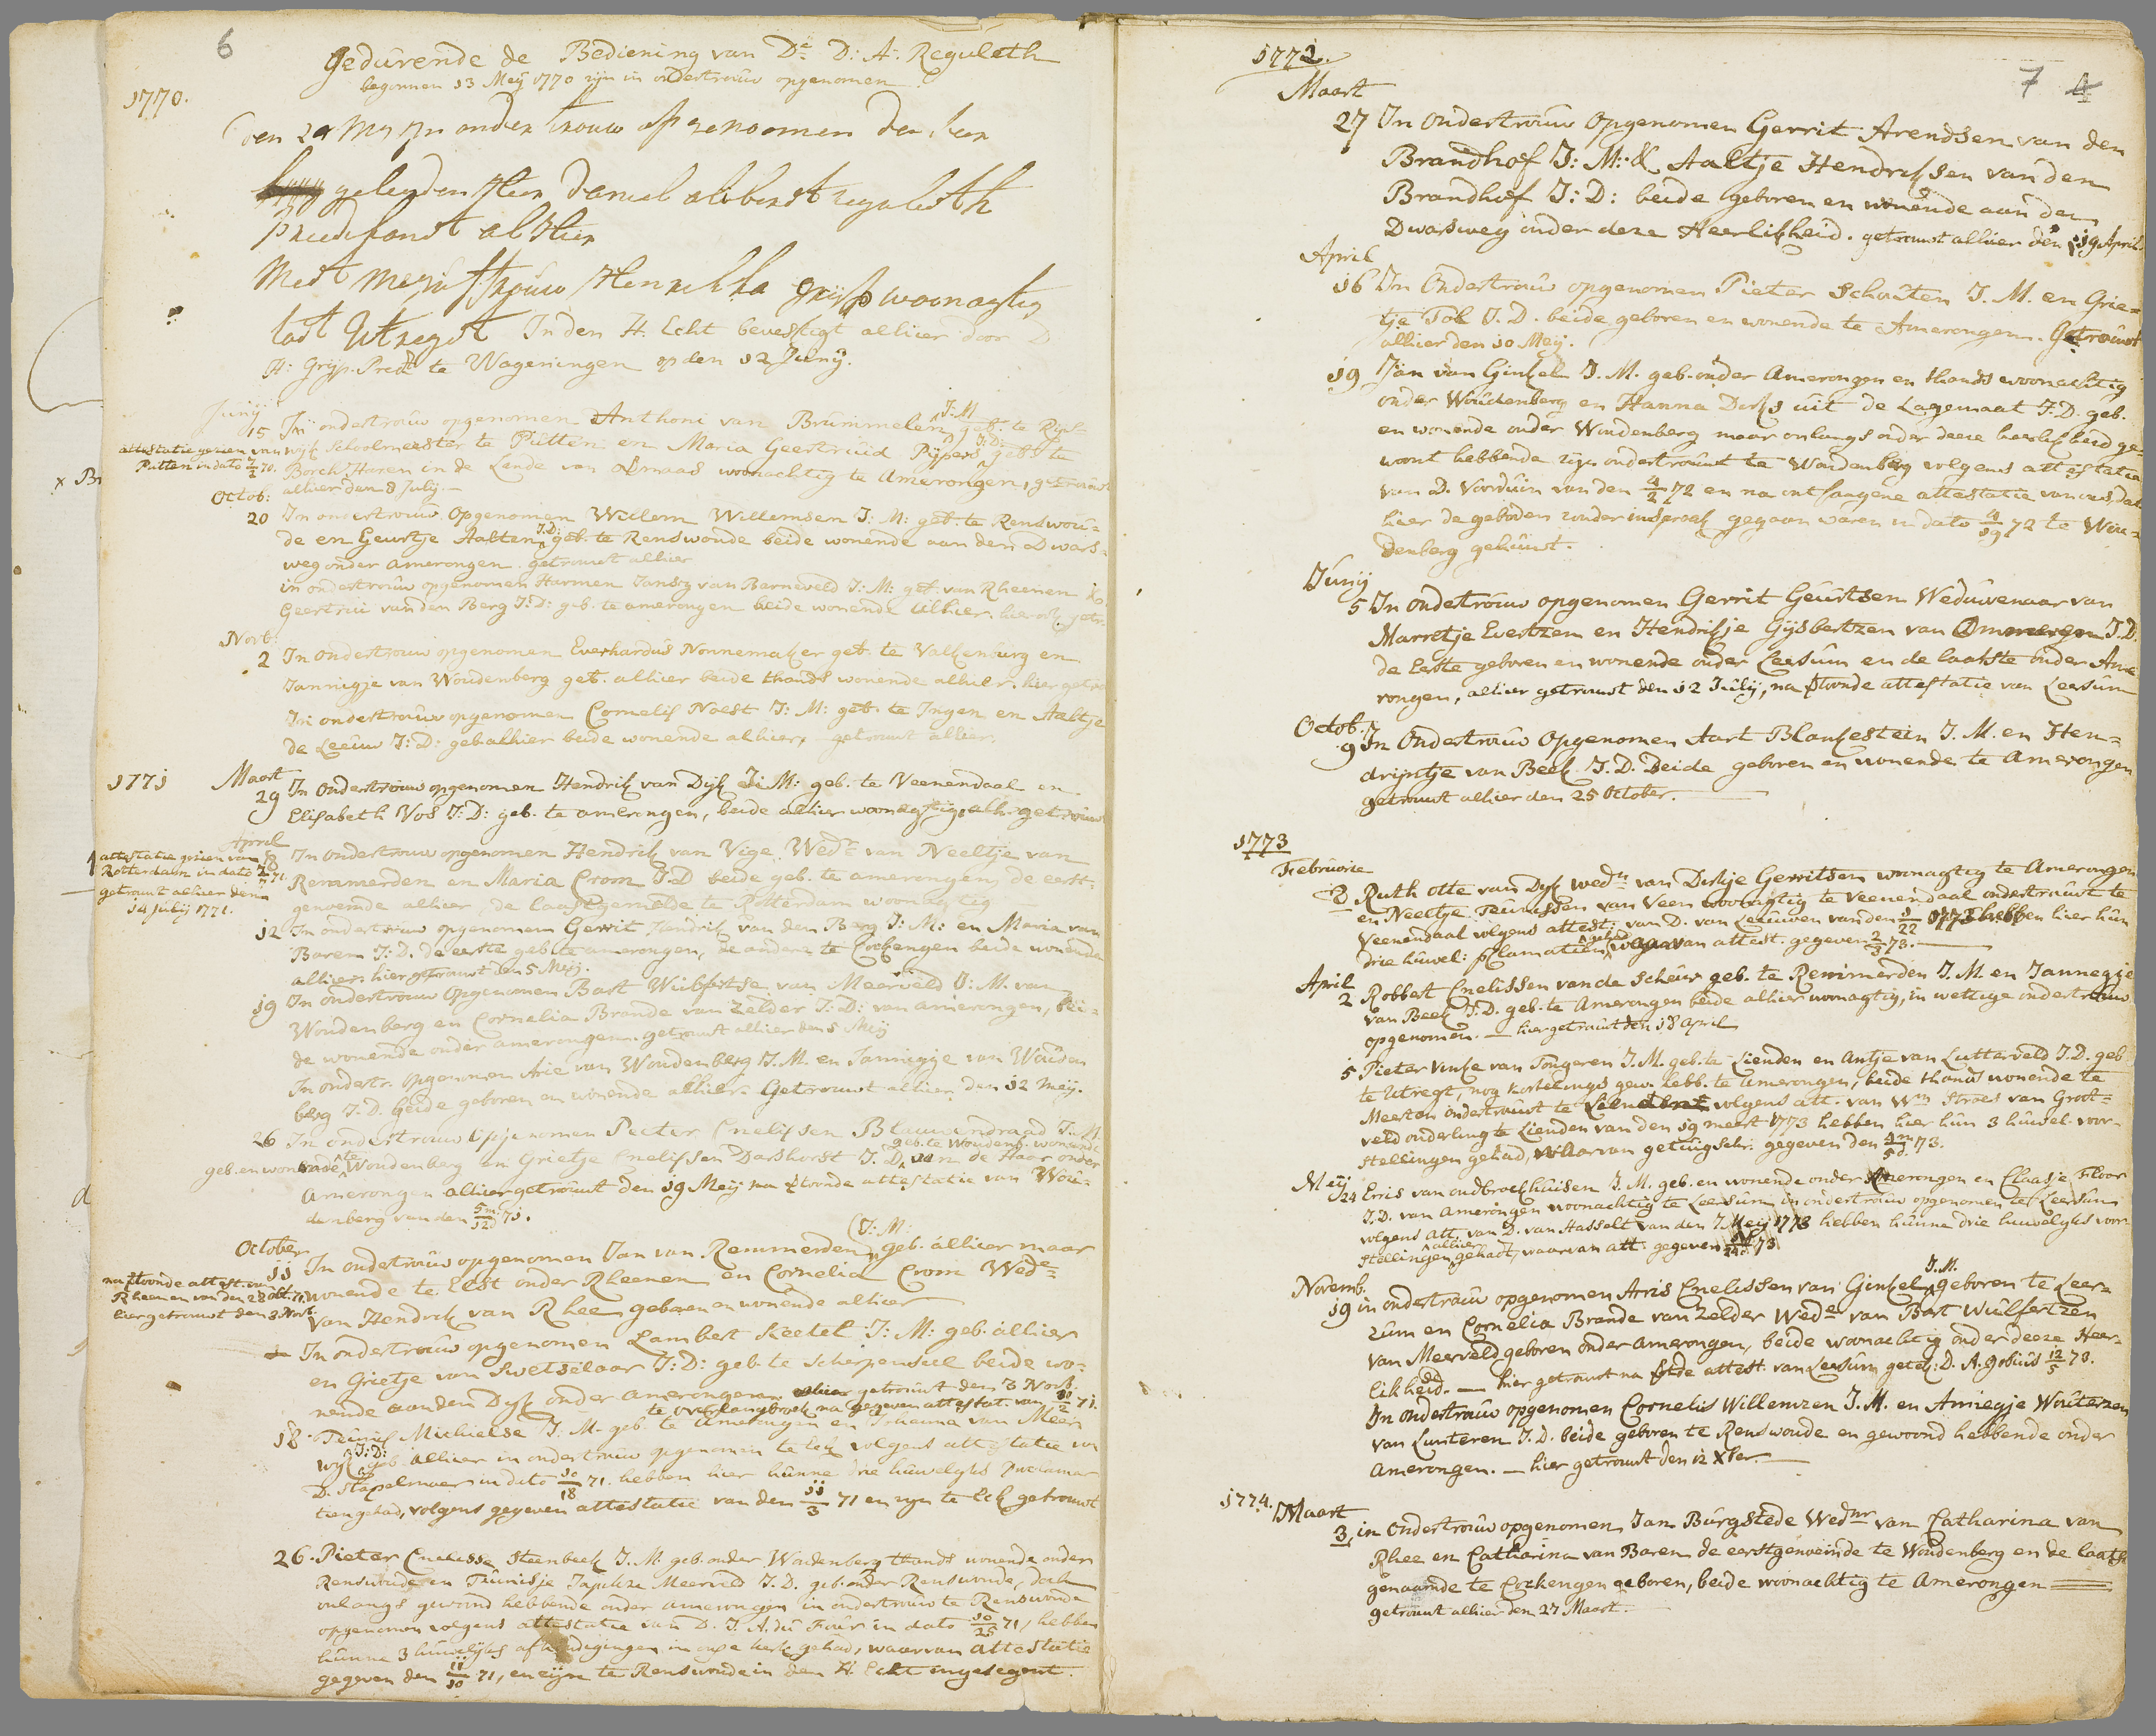 6
Gedurende de Bediening van Ds D: A: Reguleth
begonnen 13 Meij 1770 zijn in ondertrouw opgenomen
1770.
den 24 Mey zyn onder trouw op genoomen den heer
geleerden Heer Daniel Alibert reguleth
predikant al hier
Met mejuffrouw Henrikka Grijp woonagtig
tot Utregt In den H. Echt bevestigt alhier door D
H: Grijp. Predt te Wageningen op den 12 Junij.
Junij
15 In ondertrouw opgenomen Anthoni van Brummelen J:M geb: te Rijs=
wijk Schoolmeester te Putten en Maria Geertruid Pijpers J:D: geb: te
attestatie gesien van
Putten in dato 7/2 70.
Borch Haren in de Lende van de Maas woonachtig te Amerongen, getrouwt
alhier den 8 July.
Octob:
20 In ondertrouw Opgenomen Willem Willemsen J: M: geb: te Renswou=
de en Geurtje Aalten J.D: geb: te Renswoude beide wonende aan den Dwars=
weg onder Amerongen. getrouwt alhier
in ondertrouw opgenomen Harmen Jansz van Barneveld J: M: geb: van Rheenen &
Geertrui van den Berg J: D: geb. te amerongen beide wonende alhier. hier ook getr.
Novb:
2 In ondertrouw opgenomen Everhardus Nonnemaker geb: te Valkenburg en
Jannigje van Woudenberg geb. alhier beide thands wonende alhier. hier getr
In ondertrouw opgenomen Cornelis Noest J: M: geb: te Ingen en Aaltje
de Leeuw J: D: geb: alhier beide wonende alhier, getrouwt alhier.
1771 Maart
29 In Ondertrouw opgenomen Hendrik van Dijk J: M: geb. te Veenendaal en
Elisabeth Vos J: D: geb. te amerongen, beide alhier woonagtig, alh. getrouwt
April
attestatie gesien van
Rotterdam in dato 71.
getrouwt alhier den
14 julij 1771.
In ondertrouw opgenomen Hendrik van Vige Wedr van Neeltje van
Remmerden en Maria Crom J.D beide geb. te amerongen, de eerst=
genoemde alhier, de laastgemelde te Rotterdam woonagtig
12 In ondertrouw opgenomen Gerrit Jandrik van den Berg J: M: en Maria van
Baren J: D. de eerste geb te amerongen, de andere te Cockengen beide wonende
alhier. hier getrouwt den 5 Meij.
19 In ondertrouw Opgenomen Bart Wulfertse van Meerveld J: M. van
Woudenberg en Cornelia Brande van Zelder J: D: van amerongen, bei=
de wonende onder amerongen. getrouwt alhier den 5 Meij
In ondertr. opgenomen Arie van Woudenberg J. M. en Jannigje van Wouden
berg J. D. beide geboren en wonende alhier. Getrouwt alhier den 12 Meij.
26 In ondertrouw Opgenomen Peeter Cnelissen Blauwendraad J: M.
geb. en wonende te Woudenberg en Grietje Cnelissen Dashorst J. D, geb. te Woudenb. wonende aan de Haar onder
Amerongen alhier getrouwt den 19 Meij na getoonde attestatie van Wou=
denberg van den 5m/12d 71.
October
11 In ondertrouw opgenomen Jan van Remmerden (J: M: geb. alhier maar
wonende te Elst onder Rheenen en Cornelia Crom Wede
van Hendrik van Rhee geboren en wonende alhier
na getoonde attest. van
Rheenen van den 28 Oct. 71.
hier getrouwt den 3 Nov.
In ondertrouw opgenomen Lambert Keetel J: M: geb. alhier
en Grietje van Swetselaar J: D: geb. te Scherpenseel beide wo=
nende aan den Dijk onder amerongen. alhier getrouwt den 3 Nov.
te overlangbroek na gegeven attestat. van 11/2 71.
18 Teunis Michielse J. M. geb. te Amerongen en Johanna van Meer
wijk J: D: geb alhier in ondertrouw opgenomen te Eck volgens attestatie van
D. Stapelmoer in dato 10/18 71. hebben hier hunne drie huwelijks proclama=
tien gehad, volgens gegeven attestatie van den 11/3 71 en zyn te Eck getrouwt
26. Pieter Cnelisse Steenbeek J. M. geb. onder Woudenberg thands wonende onder
Renswoude en Teunisje Japikze Meerveld J. D. geb. onder Renswoude, doch
onlangs gewoond hebbende onder amerongen in ondertrouw te Renswoude
opgenomen volgens attestatie van D. J. A. du Four in dato 10/25 71, hebben
hunne 3 huwelijks afkondigingen in onze kerk gehad, waarvan attestatie
gegeven den 11/10 71, en zijn te Renswoude in den H. Echt ingesegent.
1772.
7 4
Maart
27 In Ondertrouw Opgenomen Gerrit Arendsen van den
Brandhof J: M: & Aaltje Hendriksen van den
Brandhof J: D: beide geboren en wonende aan den
Dwarsweg onder deze Heerlikheid. getrouwt alhier den 19 April
April
16 In Ondertrouw opgenomen Pieter Schouten J. M. en Grie=
tje Tok J. D. beide geboren en wonende te Amerongen. Getrouwt
alhier den 10 Meij.
19 Jan van Ginkel J. M. geb. onder Amerongen en thands woonachtig
onder Woudenberg en Hanna Dirks uit de Lagemaat J. D. geb.
en wonende onder Woudenberg maar onlangs onder deese heerlikheid ge=
woont hebbende zijn ondertrouwt te Woudenberg volgens attestatie
van D. Voorduin van den 4/2 72 en na ontfangene attestatie van ons, dat
hier de geboden zonder inspraak gegaan waren in dato 4/19 72 te Wou=
denberg gehuwt.
Junij
5 In ondertrouw opgenomen Gerrit Geurtsen Weduwenaar van
Marretje Evertzen en Hendrikje Gijsbertzen van Ommeren J. D.
de Eerste geboren en wonende onder Leersum en de laatste onder Ame
rongen, alhier getrouwt den 12 Julij, na getoonde attestatie van Leersum
Octob.
9 In Ondertrouw Opgenomen Aart Blankestein J. M. en Hen=
drijntje van Beek J. D. Beide geboren en wonende te Amerongen
getrouwt alhier den 25 October.
1773
Februarie
Ruth Otte van Dyk wedr van Dirkje Gerritsen woonagtig te Amerongen
en Neeltje Teunissen van Veen woonagtig te Veenendaal ondertrouwt te
Veenendaal volgens attest: van D. van Leeuwen van den 1/22 1773 hebben hier hun
drie huwel: proclamatien gehad, waarvan attest. gegeven 2/3 73.
April
2 Robbert Cnelissen van de Scheur geb. te Remmerden J. M. en Jannegje
van Beek J. D. geb. te Amerongen beide alhier woonagtig, in wettige ondertrouw
opgenomen. — hier getrouwt den 18 April
5 Pieter Vinke van Tongeren J. M. geb. te Lienden en Antje van Lutterveld J. D. geb
te Utregt, nog kortelings gew. hebb. te Amerongen, beide thands wonende te
Meerten ondertrouwt te volgens att. van Wm Stroes van Groot=
veld ouderling te Lienden van den 19 meert 1773 hebben hier hun 3 huwel. voor-
stellingen gehad, waarvan getuigschr. gegeven den 4m/5d 73.
Meij
24 Erris van oudbroekhuisen J. M. geb. en wonende onder Amerongen en Claasje Floor
J. D. van Amerongen woonachtig te Leersum in ondertrouw opgenomen te Leersum
volgens att. van D. van Hasselt van den 7 Meij 1773 hebben hunne drie huwelijks voor-
stellingen alhier gehadt, waarvan att: gegeven 73
Novemb.
19 in ondertrouw opgenomen Aris Cnelissen van Ginkel J. M. geboren te Leer=
zum en Cornelia Brande van Zelder Wede van Bart Wulfertzen
van Meerveld geboren onder Amerongen, beide woonachtig onder deeze Heer=
likheid. — hier getrouwt na getde attest. van Leersum getek: D. A. Gobius 12/5 73.
In ondertrouw opgenomen Cornelis Willemzen J. M. en Annegje Wouterzen
van Lunteren J. D. beide geboren te Renswoude en gewoond hebbende onder
Amerongen. — hier getrouwt den 12 Xber.
1774. Maart
3. in Ondertrouw opgenomen Jan Burgstede Wednr van Catharina van
Rhee en Catharina van Baren de eerstgenoemde te Woudenberg en de laatst
genaamde te Cockengen geboren, beide woonachtig te Amerongen
getrouwt alhier den 27 Maart.